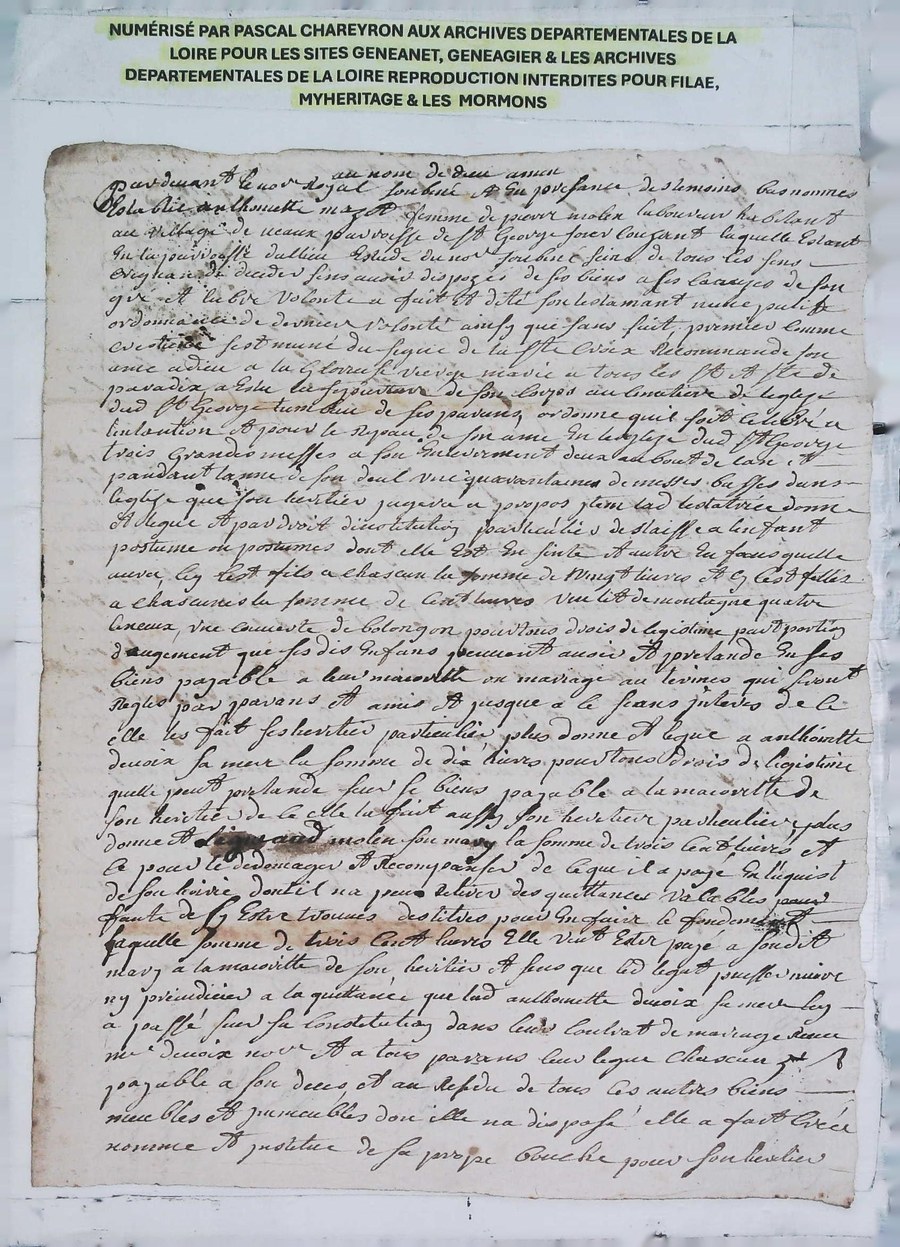 NUMÉRISÉ PAR PASCAL CHAREYRON AUX ARCHIVES DEPARTEMENTALES DE LA
LOIRE POUR LES SITES GENEANET, GENEAGIER & LES ARCHIVES
DEPARTEMENTALES DE LA LOIRE REPRODUCTION INTERDITES POUR FILAE,
MYHERITAGE & LES MORMONS
au nom de dieu amen
pardevant le nore Royal soubné et En presance des temoins bas nommes
Establie anthouette femme de pierre molen laboureur habitant
au village de ueaux parroisse de st George sour Couzant laquelle Estant
En la parroisse dallieu Estude du nore soubné saine de tous les sens
de deceder sans avoir disposés de ses biens a ses causes de son
gré et libre volonté a fait et dité son testamant
ordonnance de derniere volonté ainsy que sans suit, premier comme
crestiene sest muné du signe de la ste Croix Recommande son
ame a dieu a la Glorieuse vierge marie a tous les sts et stes de
paradix a Eslu la sepulture de son Corps au simetiere de leglize
dud st George tumbeau de ses parans ordonne quil soit celebré a
lintantion et pour le repau de son ame En leglize dud st George
trois Grandes messes a son Enterement deux au bout de lan et
pandant lanné de son deul une quarantaine de messes basses dans
leglize que son heritier jugera a propos jtem lad testatrice donne
et legue et par droit dinstitution particulier delaisse a lenfant
postume ou postumes dont elle Est En sinte et autre En fans quelle
aura, sy sest fils a chascun la somme de Vingt liures et sy sest filles
a chascunes la somme de Cent liures Vne lit de montagne quatre
linceux, vne couuerte de bolongon pour tous drois de legistime part portion
daugement que ses dis Enfans peuuent auoir et pretandre En ses
biens payable a leur maiorité ou mariage au termes qui seront
Regles par parans et amis et jusque a se sans jnteres de ce
elle les fait ses heritier particulier, plus donne et legue a anthouette
duroix sa mere la somme de dix liures pour tous drois de legistime
quelle peut pretandre sur se biens payable a la maiorité de
son heritie de ce elle la fait aussy son heritier particulier, plus
donne et molen son mary la somme de trois Cent liures et
ce pour le dedomager et Recompanser de ce qui il a payé En lacquist
de son hoirie dont il na peu retirer des quittances valables pour
faute de sy Estre trouués des titres pour En faire le fondement
laquelle somme de trois Cent liures Elle veut Ester payé a sondit
mary a la maiorité de son heritier et sans que led legat puisse nuire
ny preiudicier a la quittance que lad anthouette duroix sa mere luy
a passé sur sa Constitution dans leur Contrat de mariage Receu
me duroix nore et a tous parans leur legue chascun
payable a son deces et au residu de tous ces autres biens
meubles et jmmeubles don elle na disposé elle a fait Créée
nomme et jnstitue de sa prope bouche pour son heritier